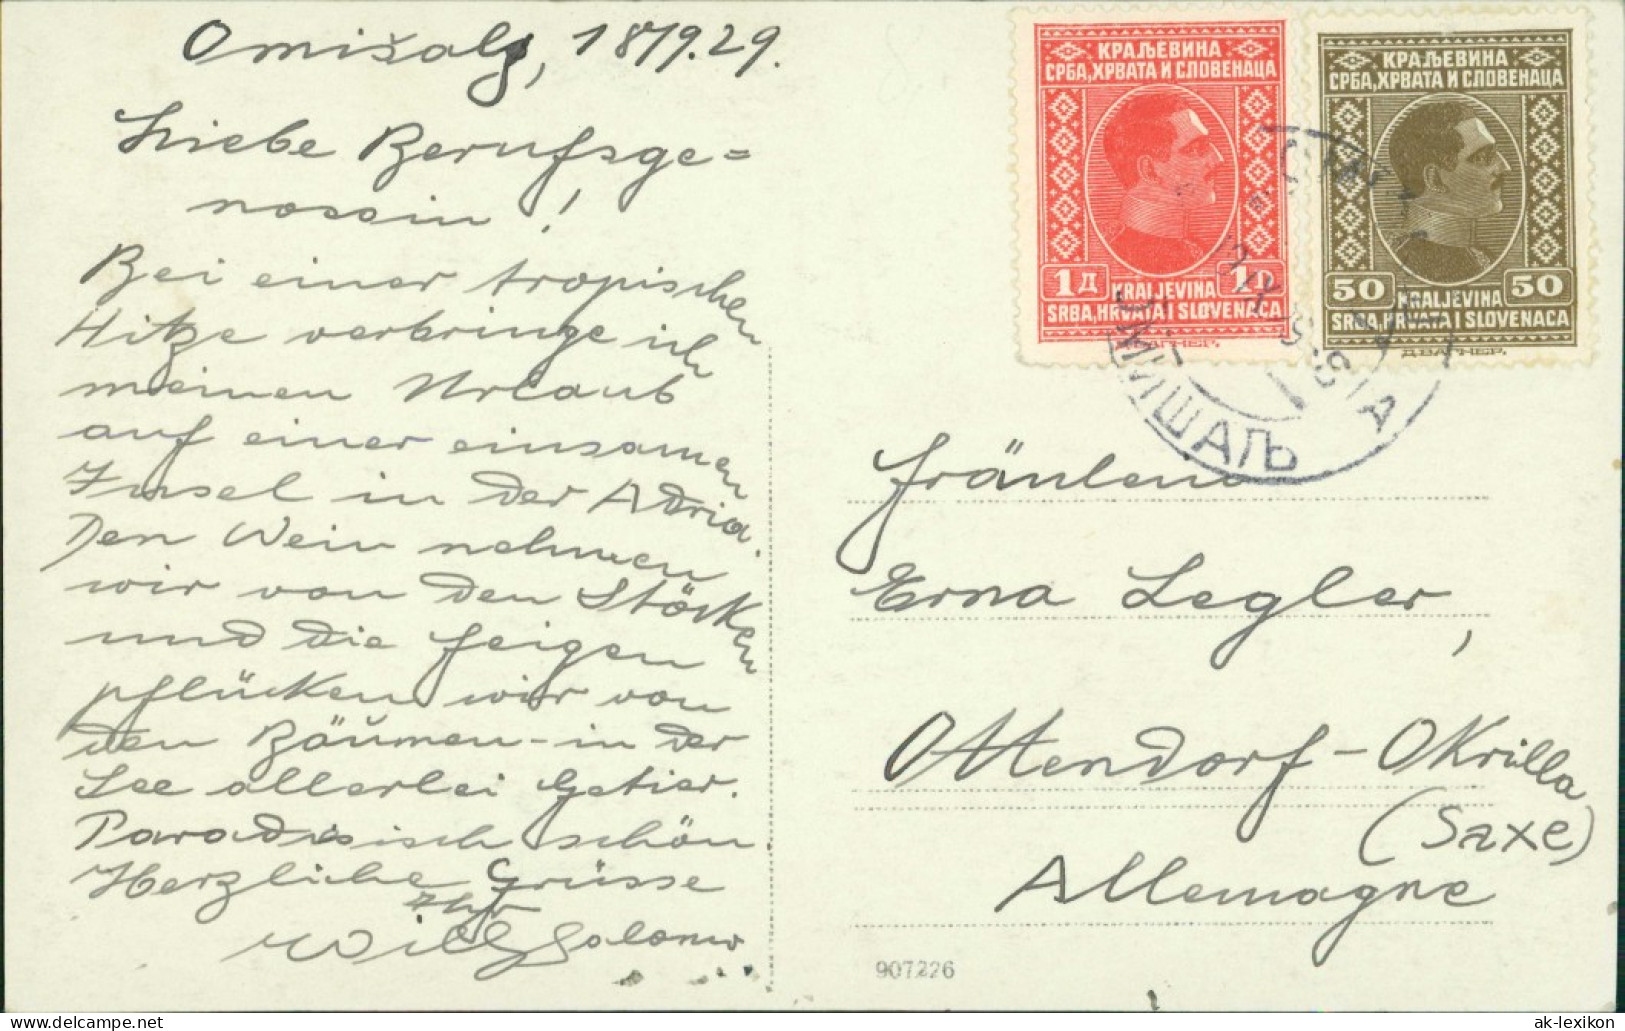 Omišalj, 18/9.29.
Liebe Berufsge=
nossin!
Bei einer tropischen
Hitze verbringe ich
meinen Urlaub
auf einer einsamen
Insel in der Adria.
Den Wein nehmen
wir von den Stöcken
und die Feigen
pflücken wir von
den Bäumen - in der
See allerlei Getier.
Paradisisch schön
Herzliche Grüsse
Ihr
Willy
КРАЉЕВИНА
СРБА, ХРВАТА И СЛОВЕНАЦА
1Д 1Д
KRALJEVINA
SRBA, HRVATA I SLOVENACA
Д. ВАГНЕР.
КРАЉЕВИНА
СРБА, ХРВАТА И СЛОВЕНАЦА
50 50
KRALJEVINA
SRBA, HRVATA I SLOVENACA
Д. ВАГНЕР.
ОМИШАЉ
Fräulein
Erna Legler,
Ottendorf-Okrilla
(Saxe)
Allemagne
907226
www.delcampe.net
ak-lexikon